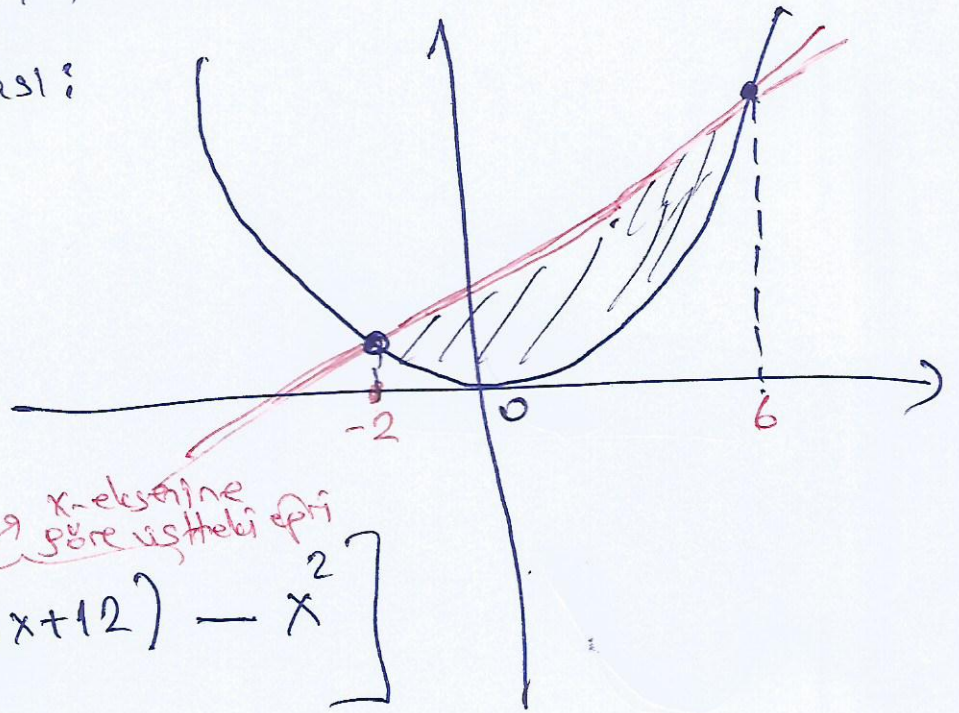 ası:
-2
0
6
x-eksenine
göre üstteki eğri
x+12) - x²]